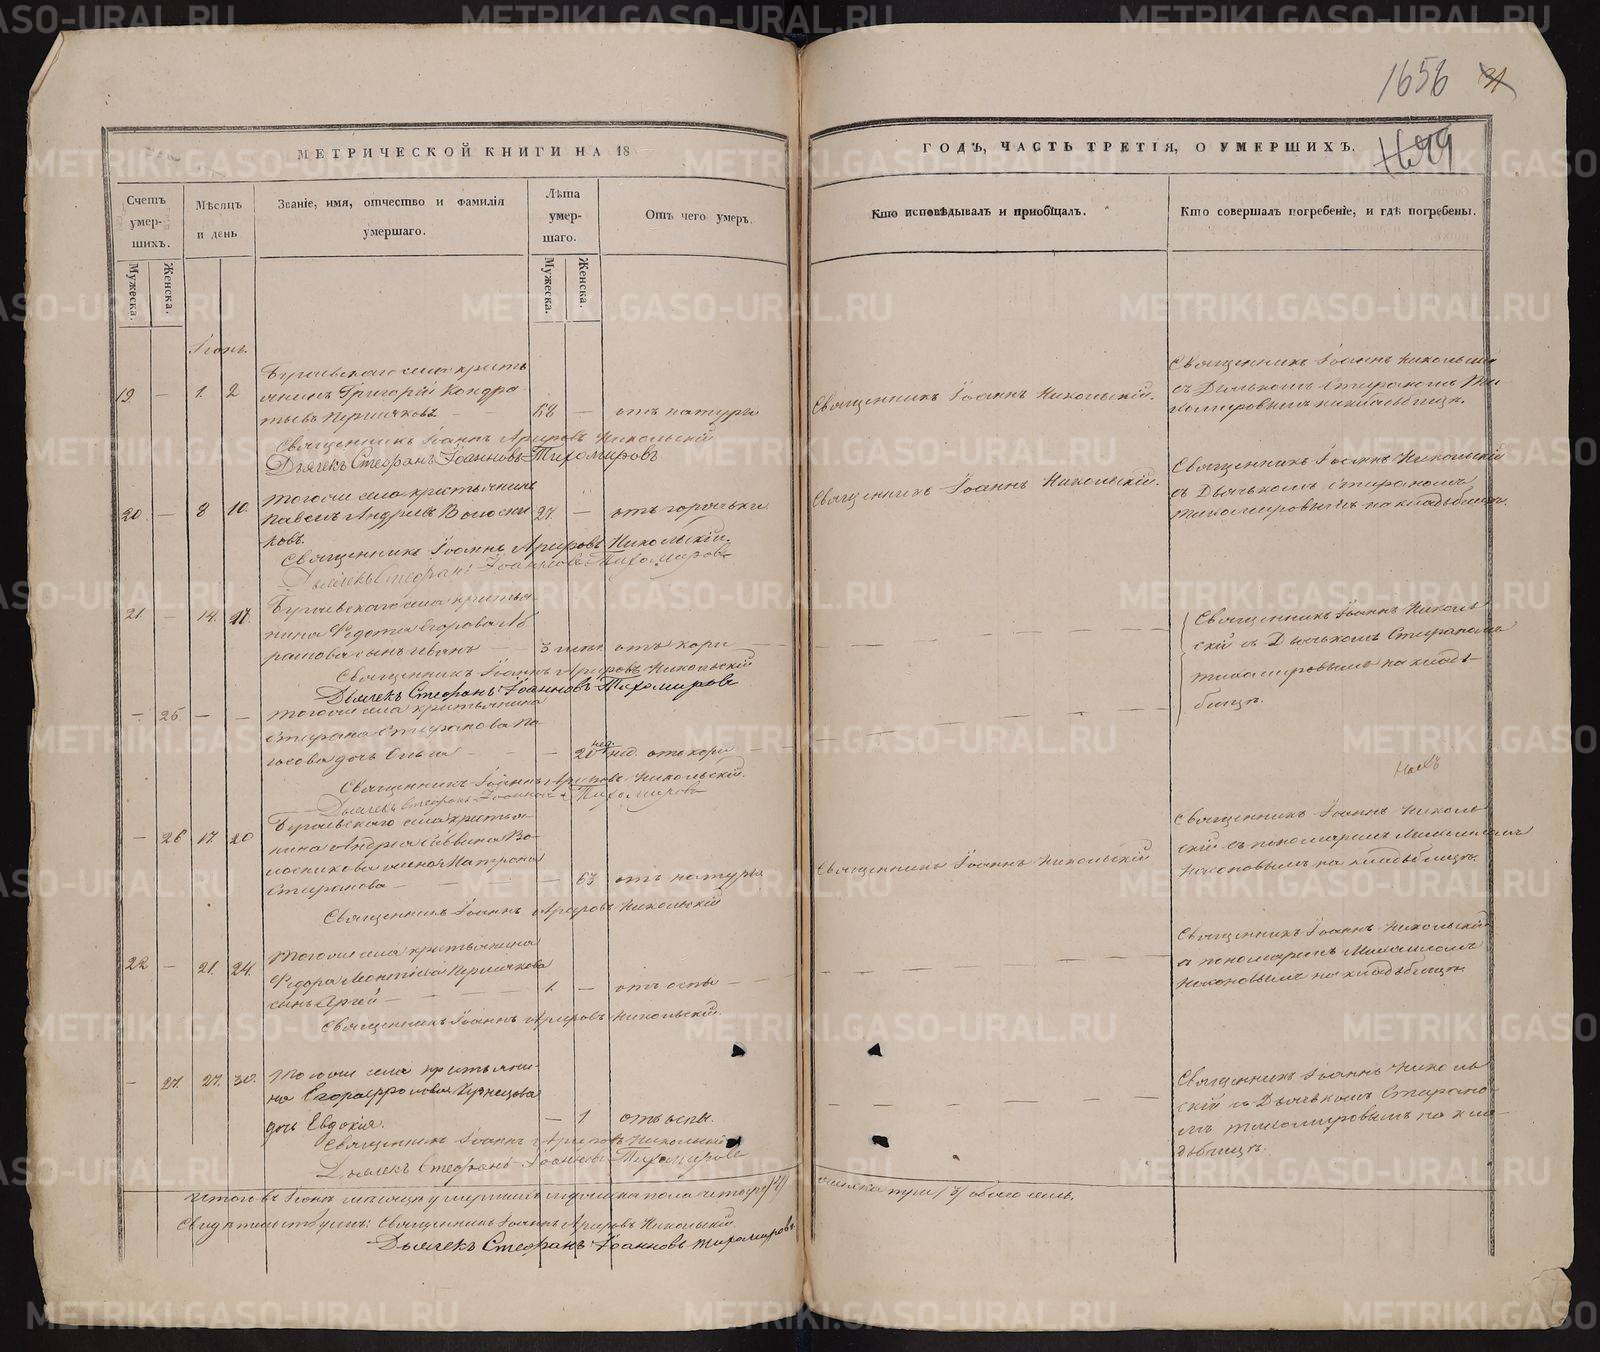 1656
31
1699
МЕТРИЧЕСКОЙ КНИГИ НА 18
ГОДЪ, ЧАСТЬ ТРЕТІЯ, О УМЕРШИХЪ.
Счетъ умер-шихъ.
Мѣсяцъ и день
Званіе, имя, отчество и фамилія умершаго.
Лѣта умер-шаго.
Отъ чего умеръ.
Кто исповѣдывалъ и пріобщалъ.
Кто совершалъ погребеніе, и гдѣ погребены.
Мужеска.
Женска.
Мужеска.
Женска.
Іюнь.
19 — 1. 2
села кресть
янинъ Григорій Кондра
тьевъ Пермяковъ — — 68 — отъ натуры
Священникъ Іоаннъ Никольскій.
Священникъ Іоаннъ Никольскій
съ Дьячкомъ Стефаномъ Ти
хомировымъ на кладбищѣ.
Священникъ Іоаннъ Никольскій
Дьячекъ Стефанъ Іоанновъ Тихомировъ
20 — 8 10
Тогоже села крестьянинъ
Павелъ Андреевъ Волосни
ковъ 27 — отъ горячьки
Священникъ Іоаннъ Никольскій.
Священникъ Іоаннъ Никольскій
съ Дьячькомъ Стефаномъ
Тихомировымъ на кладбищѣ.
Священникъ Іоаннъ Никольскій.
Дьячекъ Стефанъ Іоанновъ Тихомировъ
21 — 14. 17.
села крестья
нина Федота Егорова Аб
рамова сынъ Иванъ — 3 отъ кори
Священникъ Іоаннъ Николь
скій съ Дьячькомъ Стефаномъ
Тихомировымъ на клад-
бищѣ.
Священникъ Іоаннъ Никольскій
Дьячекъ Стефанъ Іоанновъ Тихомировъ
— 25 — —
Тогоже села крестьянина
Стефана Стефанова
дочь Ольга — — 20 нед. отъ кори
Священникъ Іоаннъ Никольскій.
Дьячекъ Стефанъ Іоанновъ Тихомировъ
— 26 17. 20
села крестья-
нина Андрея Саввина Во-
лосникова жена Матрона
Стефанова — — 63 отъ натуры
Священникъ Іоаннъ Никольскій
Священникъ Іоаннъ Николь
скій съ пономаремъ Михаиломъ
на кладбищѣ.
Священникъ Іоаннъ Никольскій
22 — 21. 24.
Тогоже села крестьянина
Федора Пермякова
сынъ — 1. — отъ оспы
Священникъ Іоаннъ Никольскій
пономаремъ Михаиломъ
на кладбищѣ.
Священникъ Іоаннъ Никольскій.
— 27. 27. 30.
Тогоже села крестьяни-
на Егора Фролова Кузнецова
дочь Евдокія. — 1 отъ оспы.
Священникъ Іоаннъ Николь
скій съ Дьячькомъ Стефано-
мъ Тихомировымъ на кла-
дбищѣ.
Священникъ Іоаннъ Никольскій
Дьячекъ Стефанъ Іоанновъ Тихомировъ
Итого въ Іюнѣ мѣсяцѣ умершихъ мужеска пола четыре /4/ женска три /3/ обоего семь.
Свидѣтельствуемъ: Священникъ Іоаннъ Никольскій
Дьячекъ Стефанъ Іоанновъ Тихомировъ
METRIKI.GASO-URAL.RU